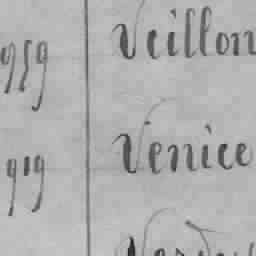 959 Veillon
919 Venice